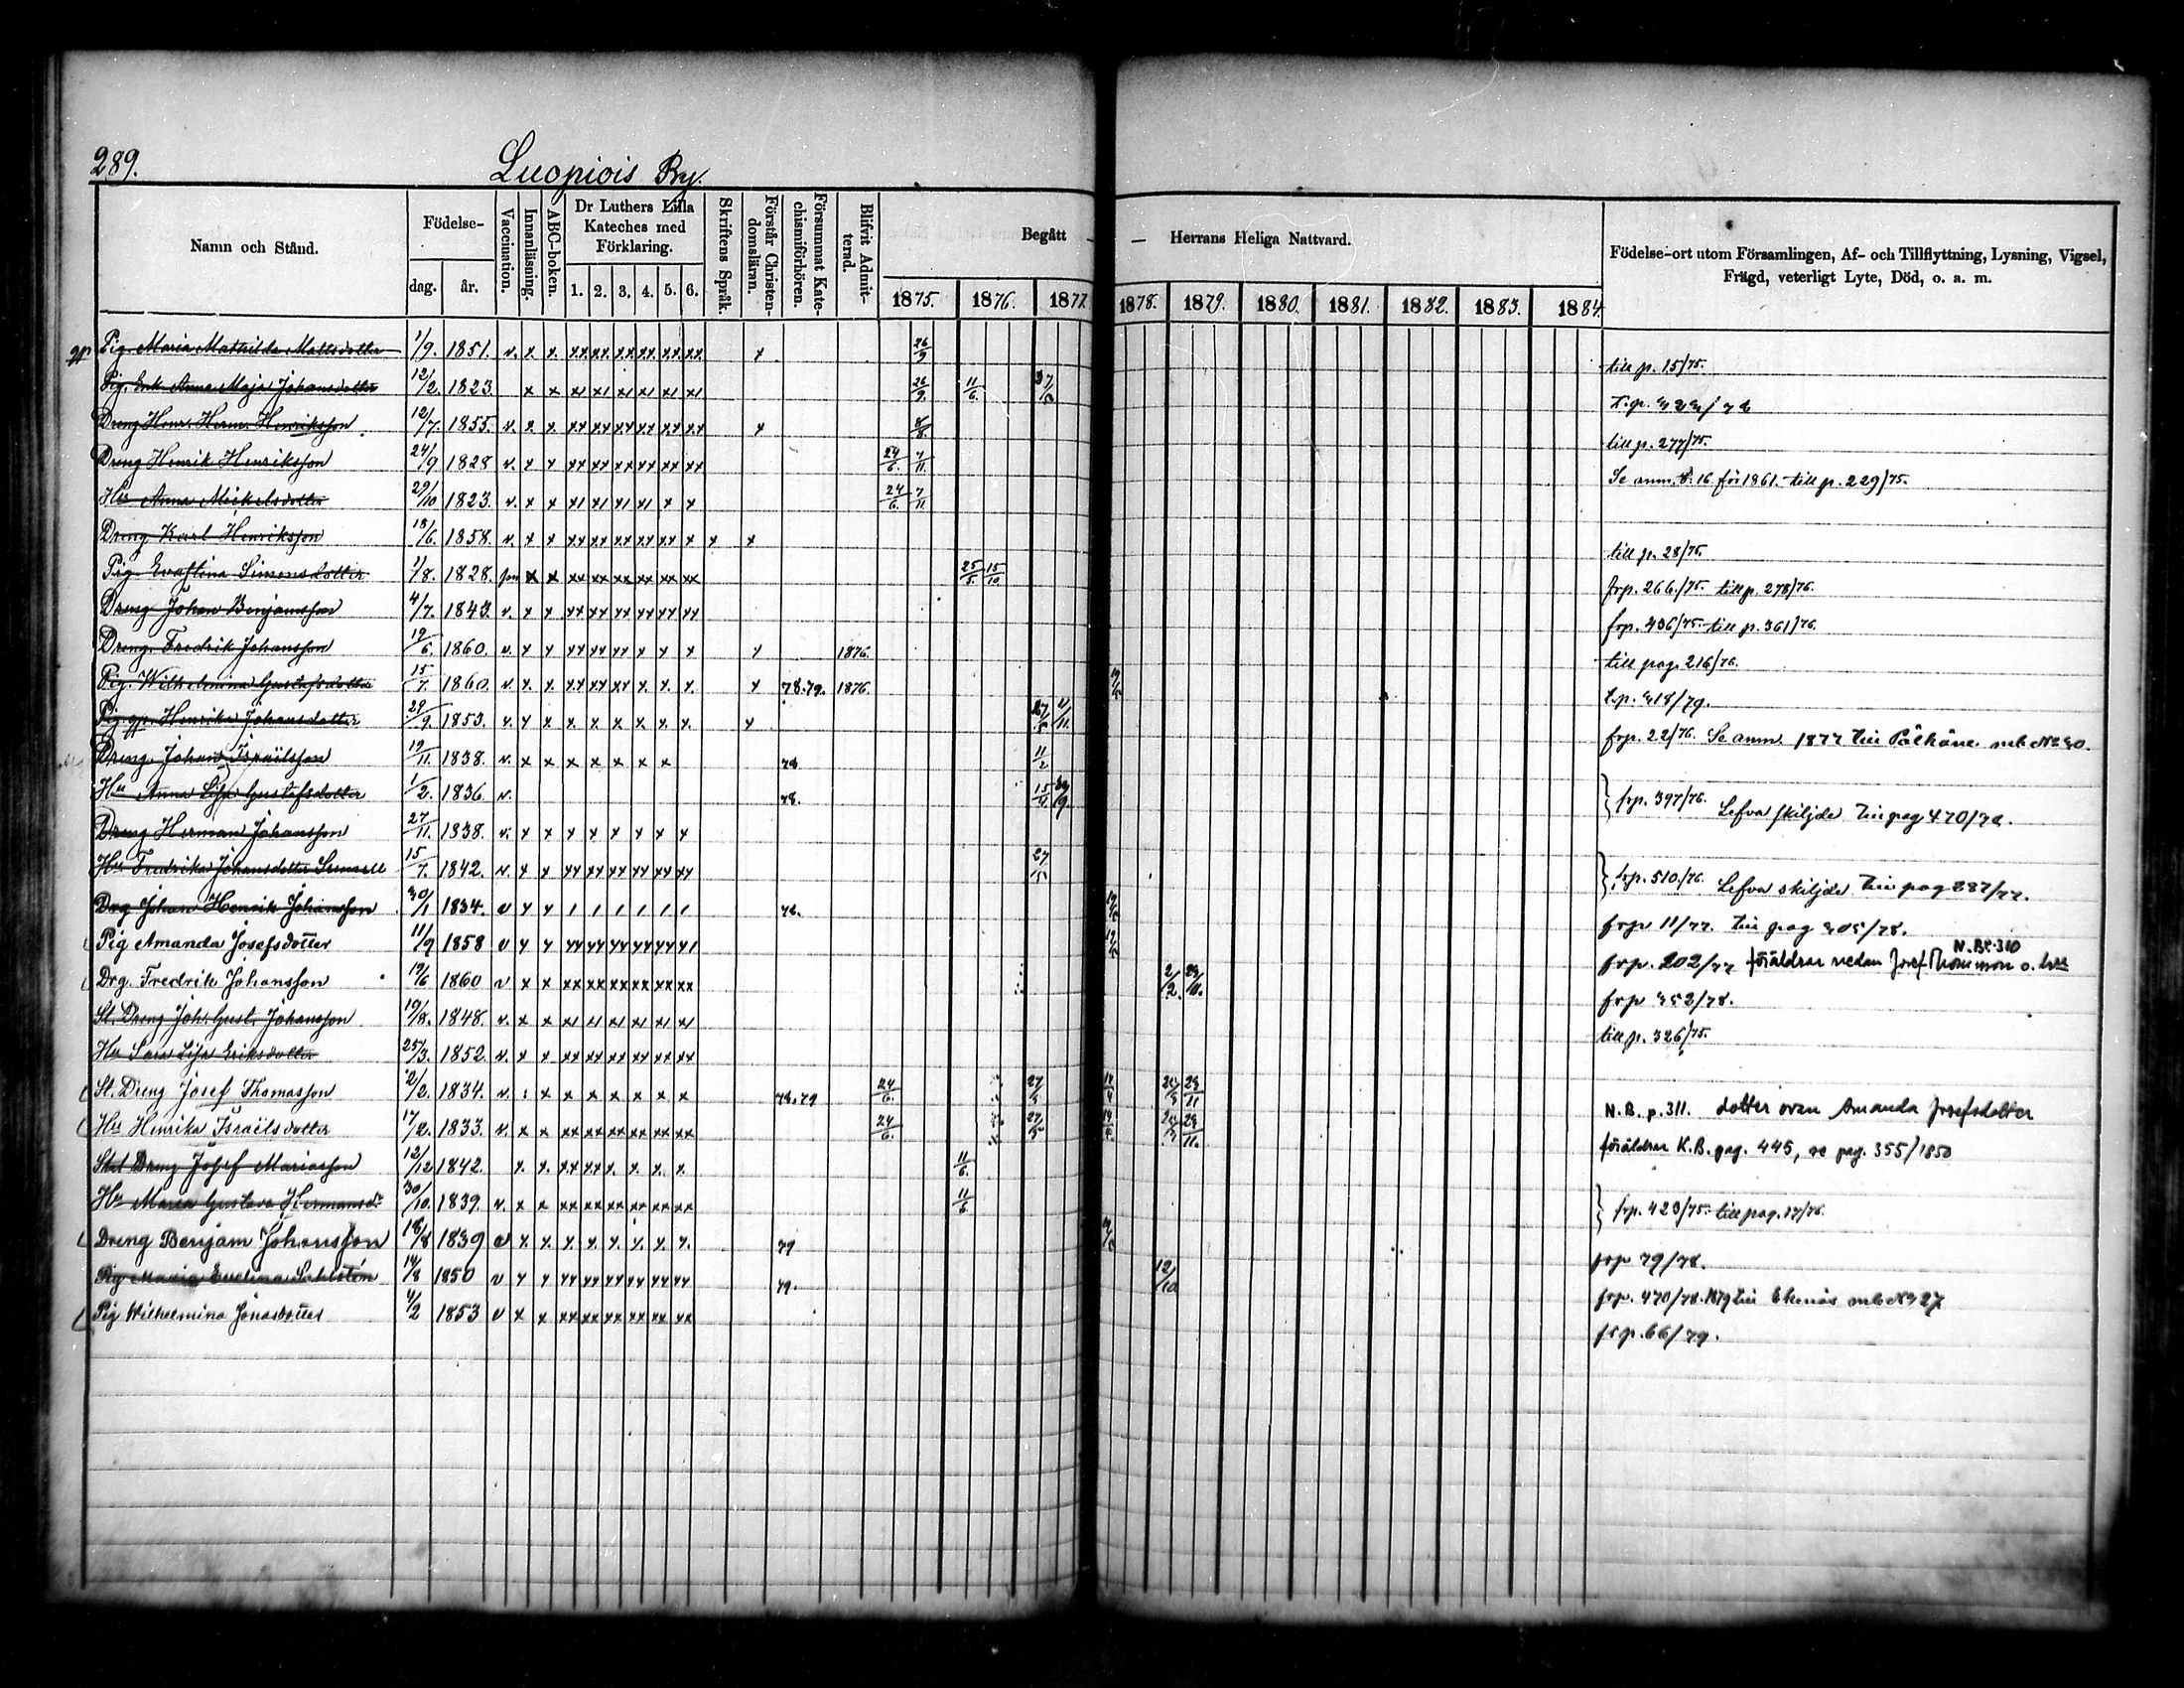 289.
Luopiois By.
Namn och Stånd.
Födelse-
dag.
år.
Vaccination.
Innanläsning.
ABC-boken.
Dr Luthers Lilla
Kateches med
Förklaring.
1. 2. 3. 4. 5. 6.
Skriftens Språk.
Förstår Christen-
domsläran.
Försummat Kate-
chismiförhören.
Blifvit Admit-
terad.
Begått — Herrans Heliga Nattvard.
1875. 1876. 1877. 1878. 1879. 1880. 1881. 1882. 1883. 1884.
Födelse-ort utom Församlingen, Af- och Tillflyttning, Lysning, Vigsel,
Frägd, veterligt Lyte, Död, o. a. m.
Pig. Maria Mathilda Mattsdotter 1/9. 1851. v. x x xx xx xx xx xx xx x 26/9 till p. 15/75.
Pig. Enk. Anna Maja Johansdotter 12/2. 1823. x x x1 x1 x1 x1 x1 x1 26/9. 11/6.
Dreng Henr. Herm. Henriksson 12/7. 1855. v. x. x. xx xx xx xx xx xx x 8/8. till p. 277/75.
Dreng Henrik Henriksson 24/9 1828 v. x x xx xx xx xx xx xx 24/6. 7/11. Se anm. 16 för 1861. till p. 229/75.
Hu Anna Mickelsdotter 29/10 1823. v. x x x1 x1 x1 x1 x x 24/6. 7/11.
Dreng Karl Henriksson 18/6. 1858. v. x x xx xx xx xx xx x x x till p. 28/75.
Pig. Evastina Simonsdotter 1/8. 1828. x x xx xx xx xx xx xx 25/5. 15/10. frp. 266./75. till p. 278/76.
Dreng Johan Benjamsson 4/7. 1843. v. x x xx xx xx xx xx xx frp. 436/75. till p. 361/76.
Dreng. Fredrik Johansson 19/6. 1860. v. x x xx xx xx x x x x 1876. till pag. 216/76.
Pig. Wilhelmina Gustafsdotter 15/7. 1860. v. x. x. xx xx xx x. x. x. x 78.79. 1876. t.p. 418/79.
Pig Henrika Johansdotter 29/9. 1853. v. x x x. x x x x. x. x 27/5 11/11. frp. 22/76. Se anm. 1877 till Pälkäne
Dreng. Johan Israilsson 19/11. 1838. v. x x x x x x x 78. 11/2
Hu Anna Lisa Gustafsdotter 1/2. 1836 v. 78. frp. 397/76. Lefva skiljde till pag 470/78.
Dreng Herman Johansson 27/11. 1838. v. x x x x x x x x
Hu Fredrika Johansdotter 15/7. 1842. v. x x xx xx xx xx xx xx 27/5 frp. 510/76. Lefva skiljde till pag 287/77.
Drg Johan Henrik Johansson 30/1 1834. v x x 1 1 1 1 1 1 78. frp 11/77. till pag 305/78.
Pig Amanda Josefsdotter 11/9 1858 v x x xx xx xx xx xx x1 frp. 202/77 föräldrar nedan Josef Thomasson o. hu N.B. p. 310
Drg. Fredrik Johansson 19/6 1860 v x x xx xx xx xx xx xx 2/2. frp 352/78.
St. Dreng Joh. Gust. Johansson 19/8. 1848. v. x x x1 x1 x1 x1 x1 x1 till p. 326/75.
Hu Sara Lisa Eriksdotter 25/3. 1852. v. x x xx xx xx xx xx xx
St. Dreng Josef Thomasson 2/2. 1834. v. x x x x x x x 78.79 24/6. 27/5 N.B. p. 311. dotter ovan Amanda Josefsdotter
Hu Henrika Israilsdotter 17/2. 1833. v. x x xx xx xx xx xx xx 24/6. 27/5 föräldrar K.B. pag. 445, se pag. 355/1850
Stat Dreng Josef Mariasson 12/12 1842. x. x. xx xx x. x. x. x. 11/6.
Hu Maria Gustava Hermansdr 30/10. 1839. v. x x xx xx xx xx xx xx 11/6. frp. 423/75. till pag. 17/76.
Dreng Benjam Johansson 18/8 1839 v x x. x. x. x. x. x. x. 79 frp 79/78.
Pig Maria Evelina Sahlstén 14/8 1850 v x x xx xx xx xx xx xx 79. 12/10 frp. 470/78. 1879 till Ekenäs
Pig Wilhelmina Jonasdotter 4/2 1853 v x x xx xx xx xx xx xx frp. 66/79.